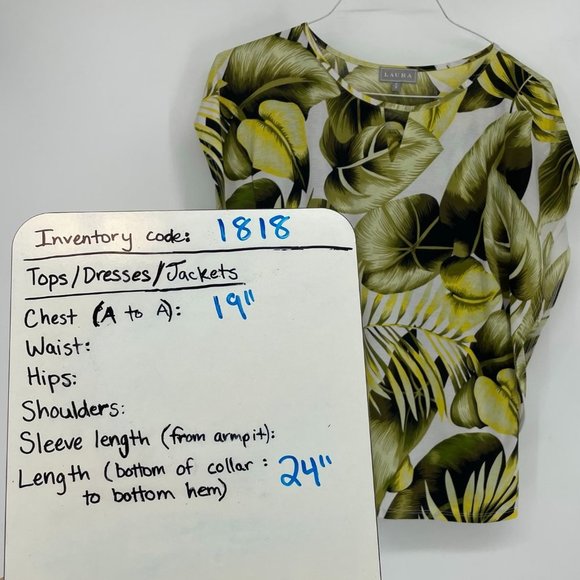 LAURA
Inventory code: 1818
Tops/Dresses/Jackets
Chest (A to A): 19"
Waist:
Hips:
Shoulders:
Sleeve length (from armpit):
Length (bottom of collar : 24"
to bottom hem)